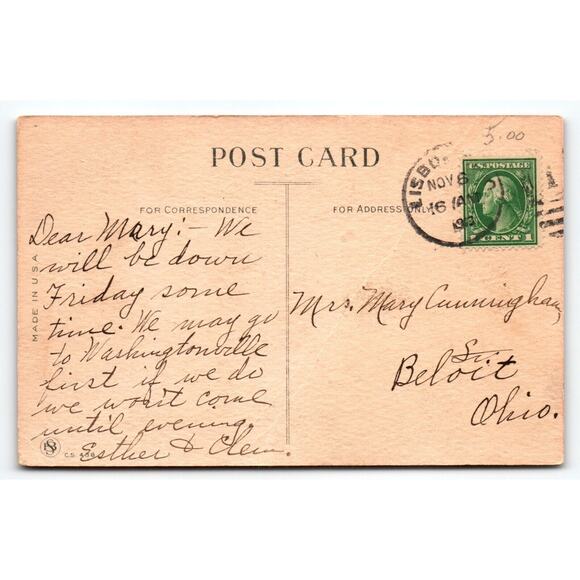 5.00
POST CARD
LISBO
NOV 6
U.S. POSTAGE
CENT 1
FOR CORRESPONDENCE
FOR ADDRESS ONLY
MADE IN U.S.A.
Dear Mary:- We
will be down
Friday some
time. We may go
to Washingtonville
first if we do
we won't come
until evening.
Esther & Clem.
Mrs. Mary Cunningham
Beloit
Ohio.